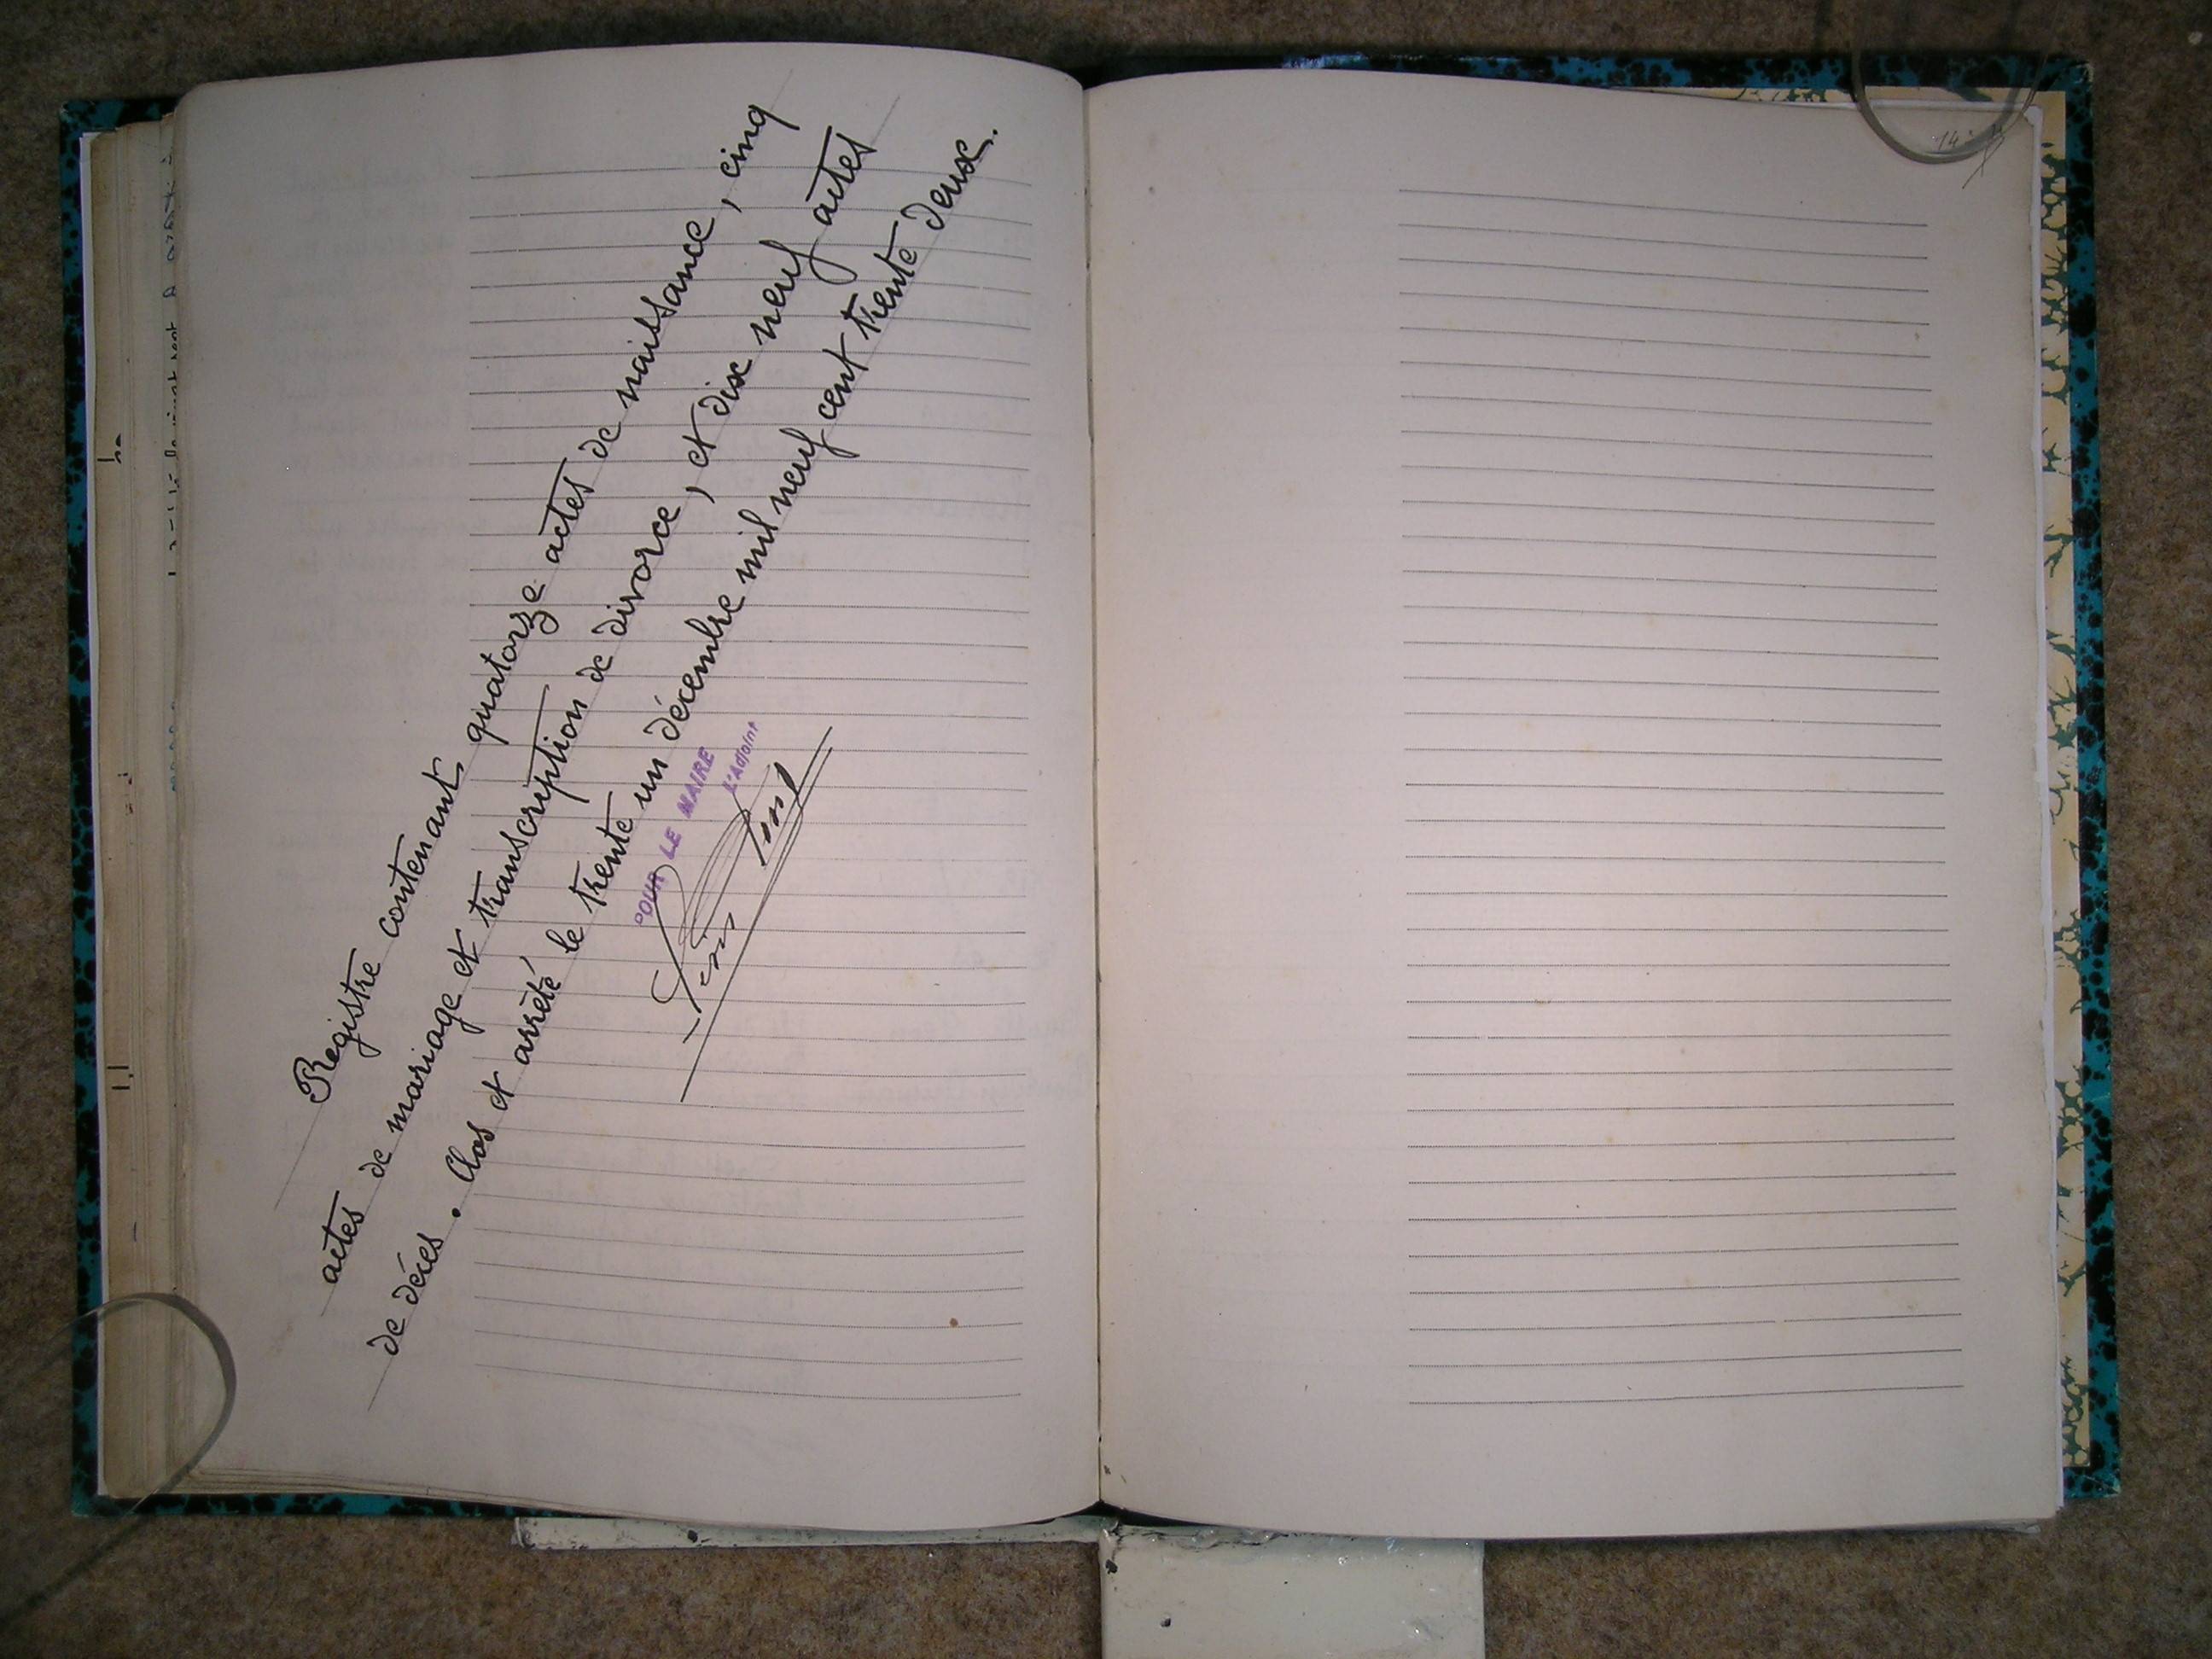 Registre contenant quatorze actes de naissance, cinq
actes de mariage et transcription de divorce, et dix neuf actes
de décès. Clos et arrêté le trente un décembre mil neuf cent trente deux.
POUR LE MAIRE
L'Adjoint